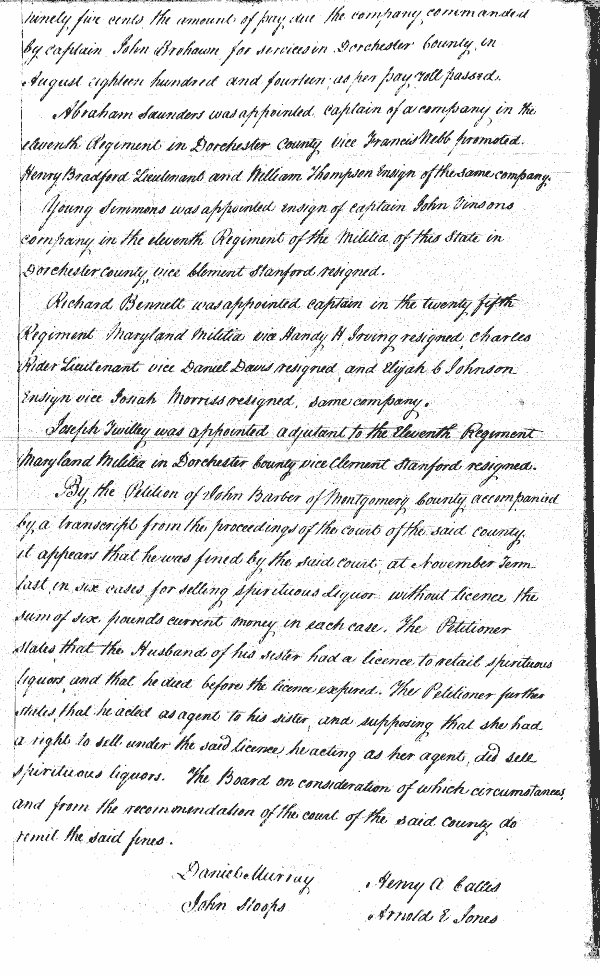 ninety five cents the amount of pay due the company commanded
by captain John Brohawn for services in Dorchester County in
August eighteen hundred and fourteen, as per pay roll passed.
Abraham Saunders was appointed captain of a company in the
eleventh Regiment in Dorchester County vice Francis Webb promoted.
Henry Bradford Lieutenant and William Thompson Ensign of the same company.
Young Simmons was appointed ensign of captain John Vinsons
company in the eleventh Regiment of the Militia of this State in
Dorchester county, vice Clement Stanford resigned.
Richard Bennett was appointed captain in the twenty fifth
Regiment Maryland Militia vice Handy H Irving resigned, Charles
Rider Lieutenant vice Daniel Davis resigned, and Elijah C Johnson
Ensign vice Josiah Morriss resigned, same company.
Joseph Twilley was appointed adjutant to the Eleventh Regiment
Maryland Militia in Dorchester County vice Clement Stanford resigned.
By the Petition of John Barber of Montgomery County accompanied
by a transcript from the proceedings of the court of the said county,
it appears that he was fined by the said court, at November Term
last in six cases for selling spirituous liquor without licence the
sum of six pounds current money in each case. The Petitioner
states that the Husband of his sister had a licence to retail spirituous
liquors, and that he died before the licence expired. The Petitioner further
states that he acted as agent to his sister, and supposing that she had
a right to sell under the said licence, he acting as her agent, did sell
spirituous liquors. The Board on consideration of which circumstances,
and from the recommendation of the court of the said county do
remit the said fines.
Daniel Murray Henry A Callis
John Stoops Arnold E Jones